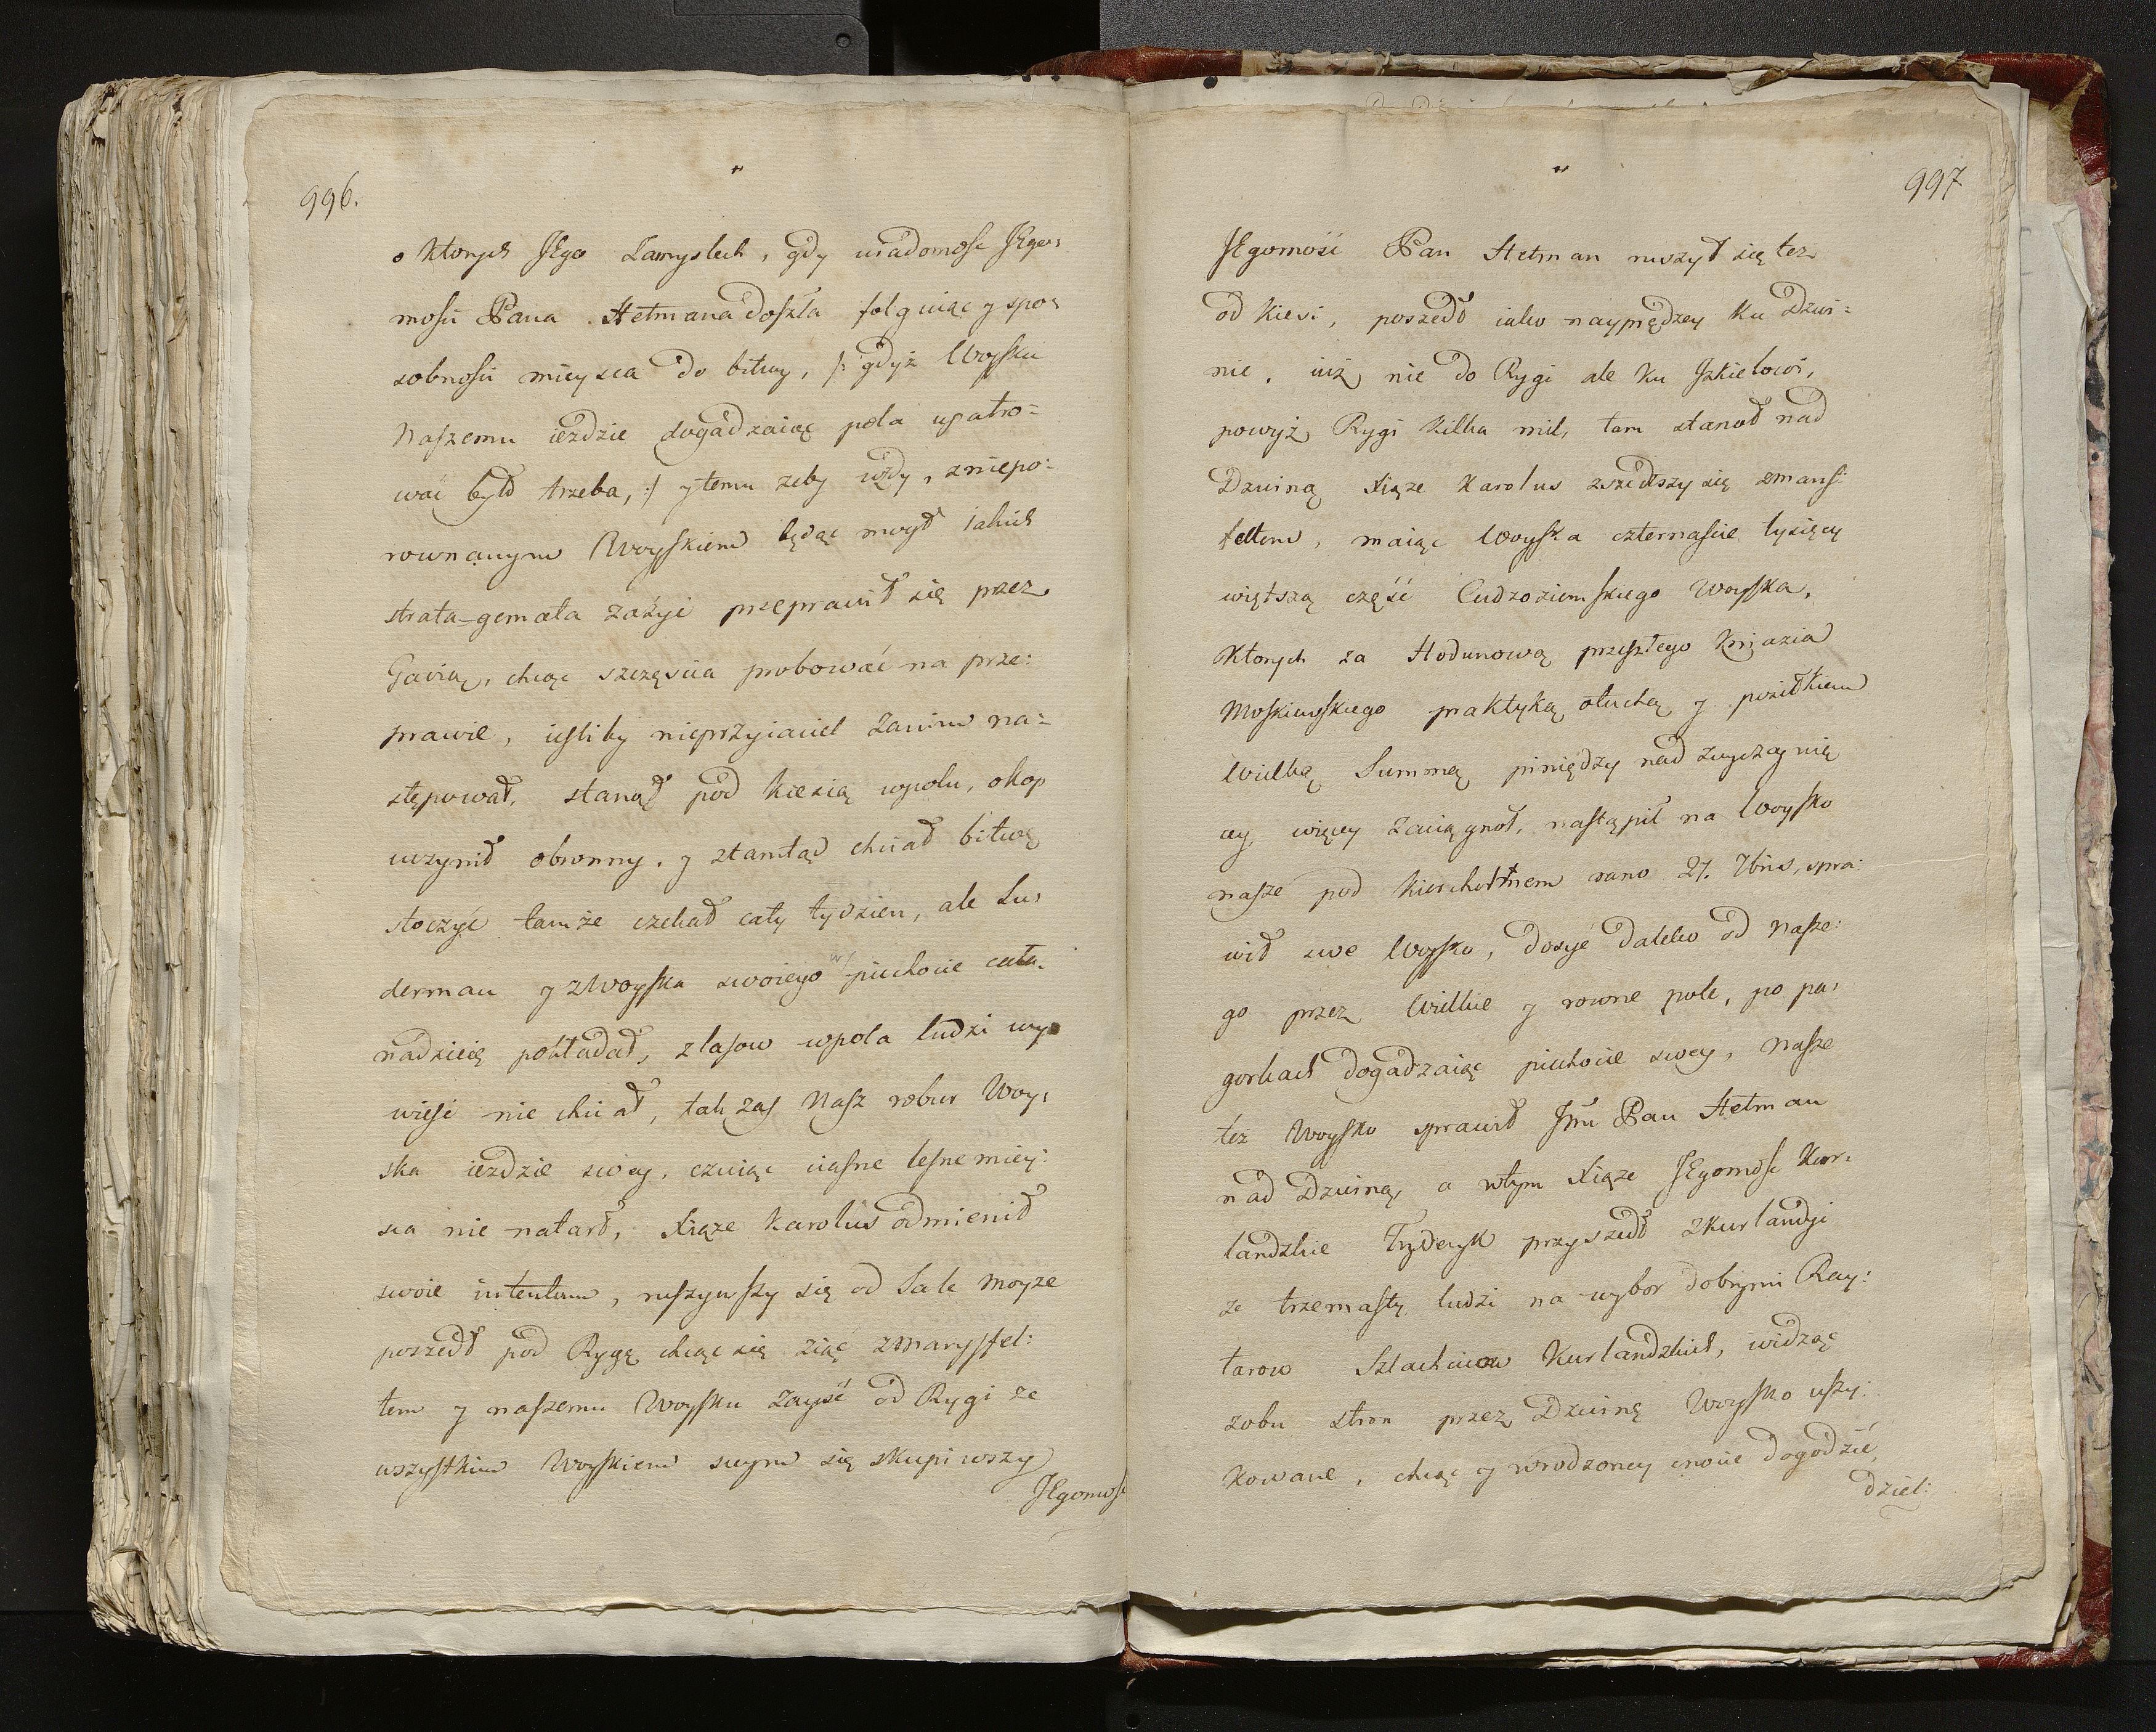 996.
o Ktorych JEgo Zamyslech, gdy wiadomosc JEgo:
mosci Pana Hetmana doszła folguiąc y spo:
sobnosci mieysca do bitwy, /: gdyż Woysku
Naszemu ieździe dogadzaiąc pola upatro=
wać było trzeba, :/ y temu zeby wżdy, z niepo:
rownanym Woyskiem będąc mogł iakich
strata-gemata zażyć przeprawił się przez
Gawią, chcąc szczęścia probować na prze:
prawie, iesliby nieprzyiaciel zanim na=
stępował, stanął pod Kiesią wpolu, okop
uczynił obronny, y ztamtąd chciał bitwę
stoczyć tamże czekał cały tydzien, ale Su:
derman y zWoyska swoiego w piechocie cała
nadzieię pokładał, zlasow wpola ludzi wy
wieść nie chciał, tak zas Nasz robur Woy:
ska ieździe swey, czuiąc ciasne lesne miey:
sca nie natarł, Xiąże Karolus odmienił
swoie intentum, ruszywszy się od Sale moyze
poszedł pod Rygę chcąc się ziąć zManssfel:
tem y naszemu Woysku zayść od Rygi ze
wszystkim Woyskiem swym się skupiwszy
JEgomość
997
JEgomość Pan Hetman ruszył się też
od Kiesi, poszedł iako nayprędzey ku Dzwi=
nie, iuż nie do Rygi ale ku Jzkielowi,
powyż Rygi kilka mil, tam stanoł nad
Dzwiną Xiąże Karolus zszedszy się zmansf:
feltem, maiąc Woyska czternaście tysięcy
więtszą część Cudzoziemskiego Woyska,
Ktorych za Hodunową przeszłego Kniazia
Moskiewskiego praktyką otuchą y posiłkiem
Wielką Summą pieniędzy nad zwyczay nię
cey więcey zaciągnoł, nastąpił na Woysko
nasze pod Kierchołmem rano 27. 7bris, spra:
wił swe Woysko, dosyć daleko od nasze:
go przez Wielkie y rowne pole, po pa:
gorkach dogadzaiąc piechocie swey, Nasze
też Woysko sprawił Jmć Pan Hetman
nad Dzwiną, a wtym Xiąże JEgomość Kur:
landzkie Fryderyk przyszedł zKurlandyi
ze trzemasty ludzi na wybor dobrymi Ray:
tarow Szlachcicow Kurlandzkich, widząc
zobu stron przez Dzwinę Woysko uszy:
kowane, chcąc y wrodzoney cnocie dogodzić
dziel: